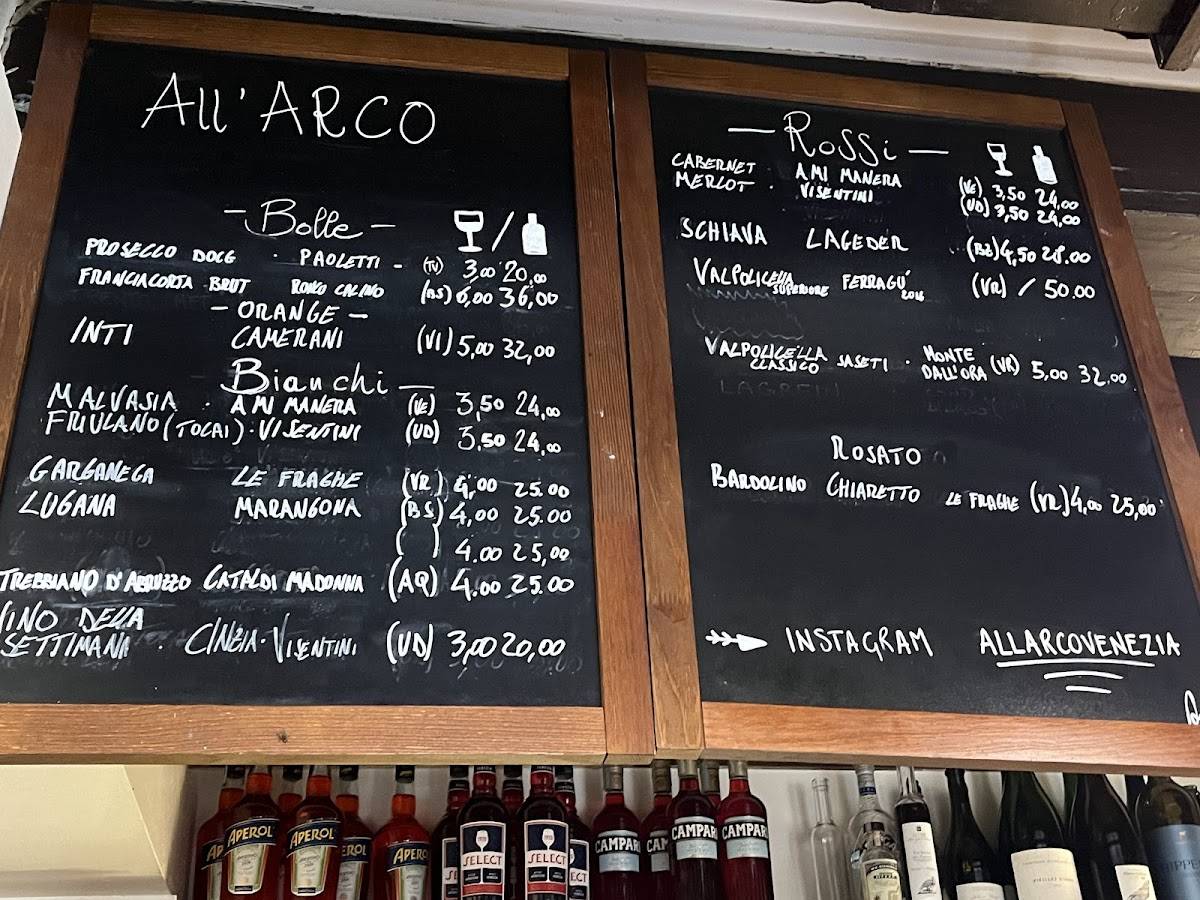 All'ARCO
- Bolle -
PROSECCO DOCG · PAOLETTI - (TV) 3,00 20,00
FRANCIACORTA BRUT RONCO CALINO (BS) 6,00 36,00
- ORANGE -
INTI CAMERANI (VI) 5,00 32,00
Bianchi -
MALVASIA · A MI MANERA (VE) 3,50 24,00
FRIULANO (TOCAI) · VISENTINI (UD) 3,50 24,00
GARGANEGA LE FRAGHE (VR) 4,00 25.00
LUGANA MARANGONA (BS) 4,00 25.00
( ) 4.00 25,00
TREBBIANO D'ABRUZZO CATALDI MADONNA (AQ) 4.00 25.00
VINO DELLA
SETTIMANA · CINZIA · VISENTINI (UD) 3,00 20,00
- ROSSi -
CABERNET · A MI MANERA (VE) 3,50 24,00
MERLOT · VISENTINI (UD) 3,50 24,00
SCHIAVA LAGEDER (BZ) 4,50 28.00
VALPOLICELLA SUPERIORE FERRAGÚ 2016 (VR) / 50.00
VALPOLICELLA CLASSICO SASETI · MONTE DALL'ORA (VR) 5,00 32,00
LAGREIN
ROSATO
BARDOLINO CHIARETTO LE FRAGHE (VR) 4,00 25,00
INSTAGRAM ALLARCOVENEZIA
APEROL
APEROL
APEROL
APEROL
SELECT
SELECT
CAMPARI
CAMPARI
CAMPARI